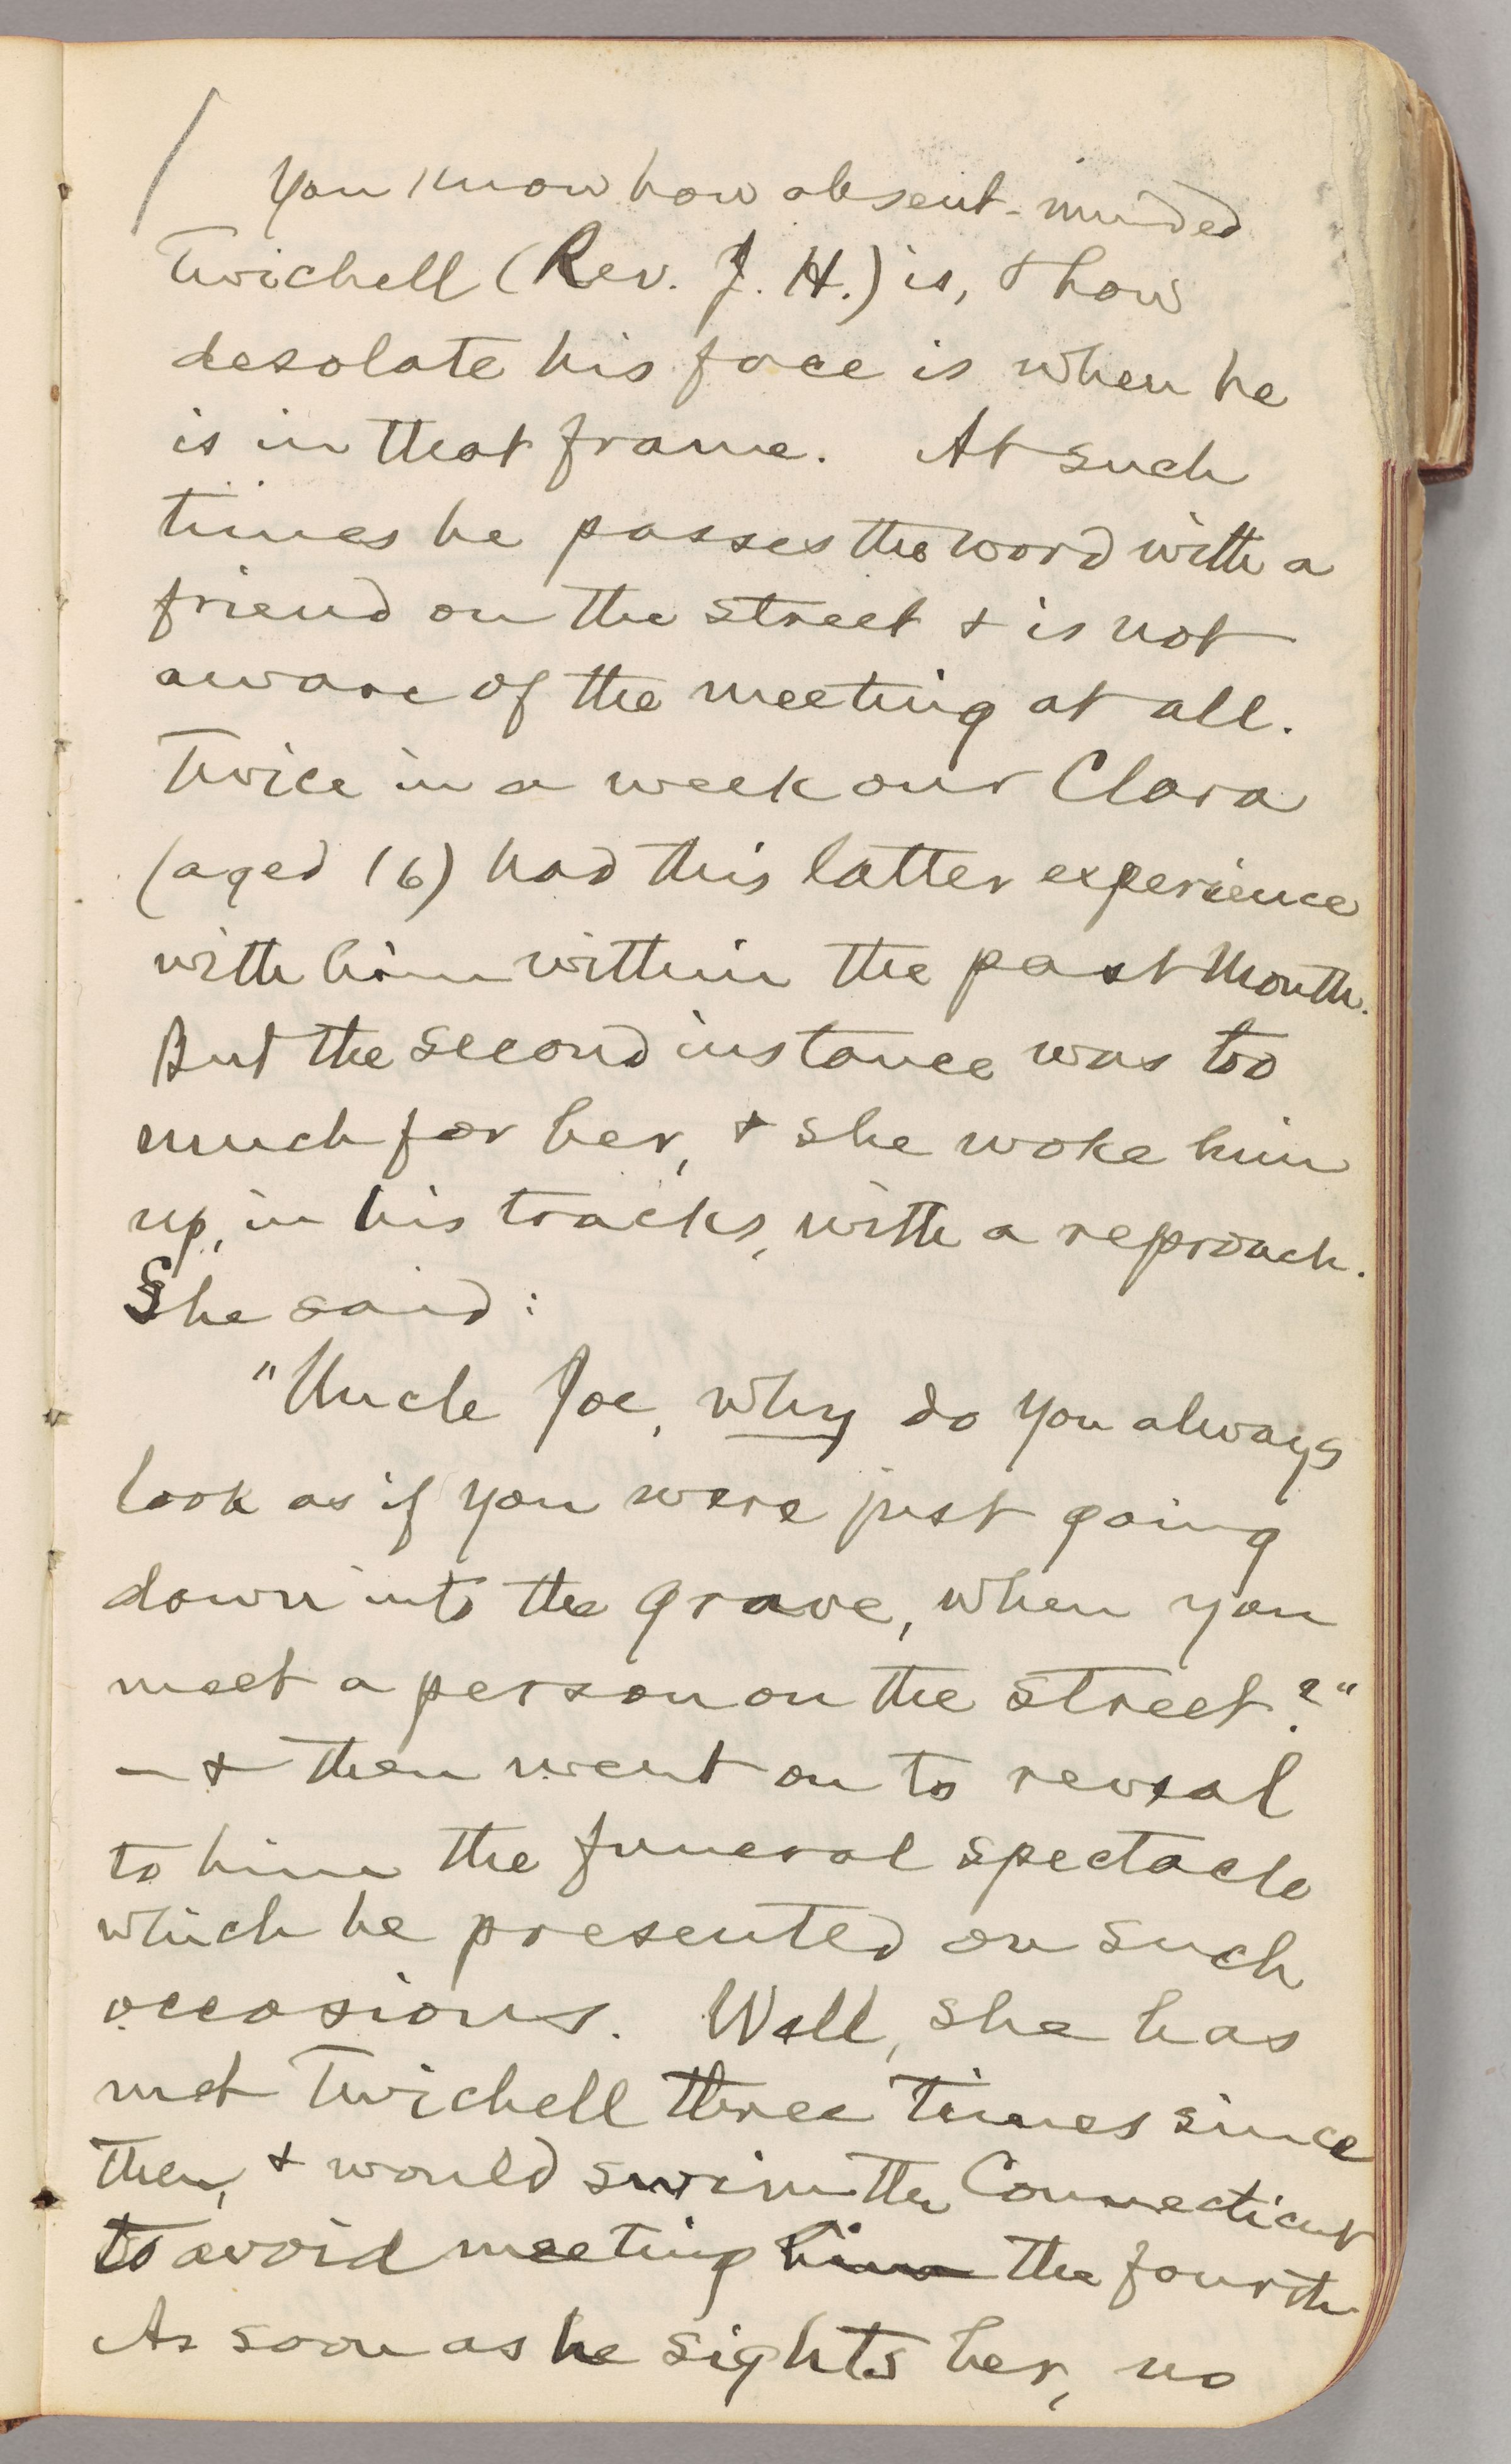 You know how absent-minded
Twichell (Rev. J. H.) is, & how
desolate his face is when he
is in that frame. At such
times he passes the word with a
friend on the street & is not
aware of the meeting at all.
Twice in a week our Clara
(aged 16) had this latter experience
with him within the past month.
But the second instance was too
much for her, & she woke him
up, in his tracks, with a reproach.
She said:
"Uncle Joe, why do you always
look as if you were just going
down into the grave, when you
meet a person on the street?"
— & then went on to reveal
to him the funeral spectacle
which he presented on such
occasions. Well, she has
met Twichell three times since
then, & would swim the Connecticut
to avoid meeting him the fourth
As soon as he sights her, no